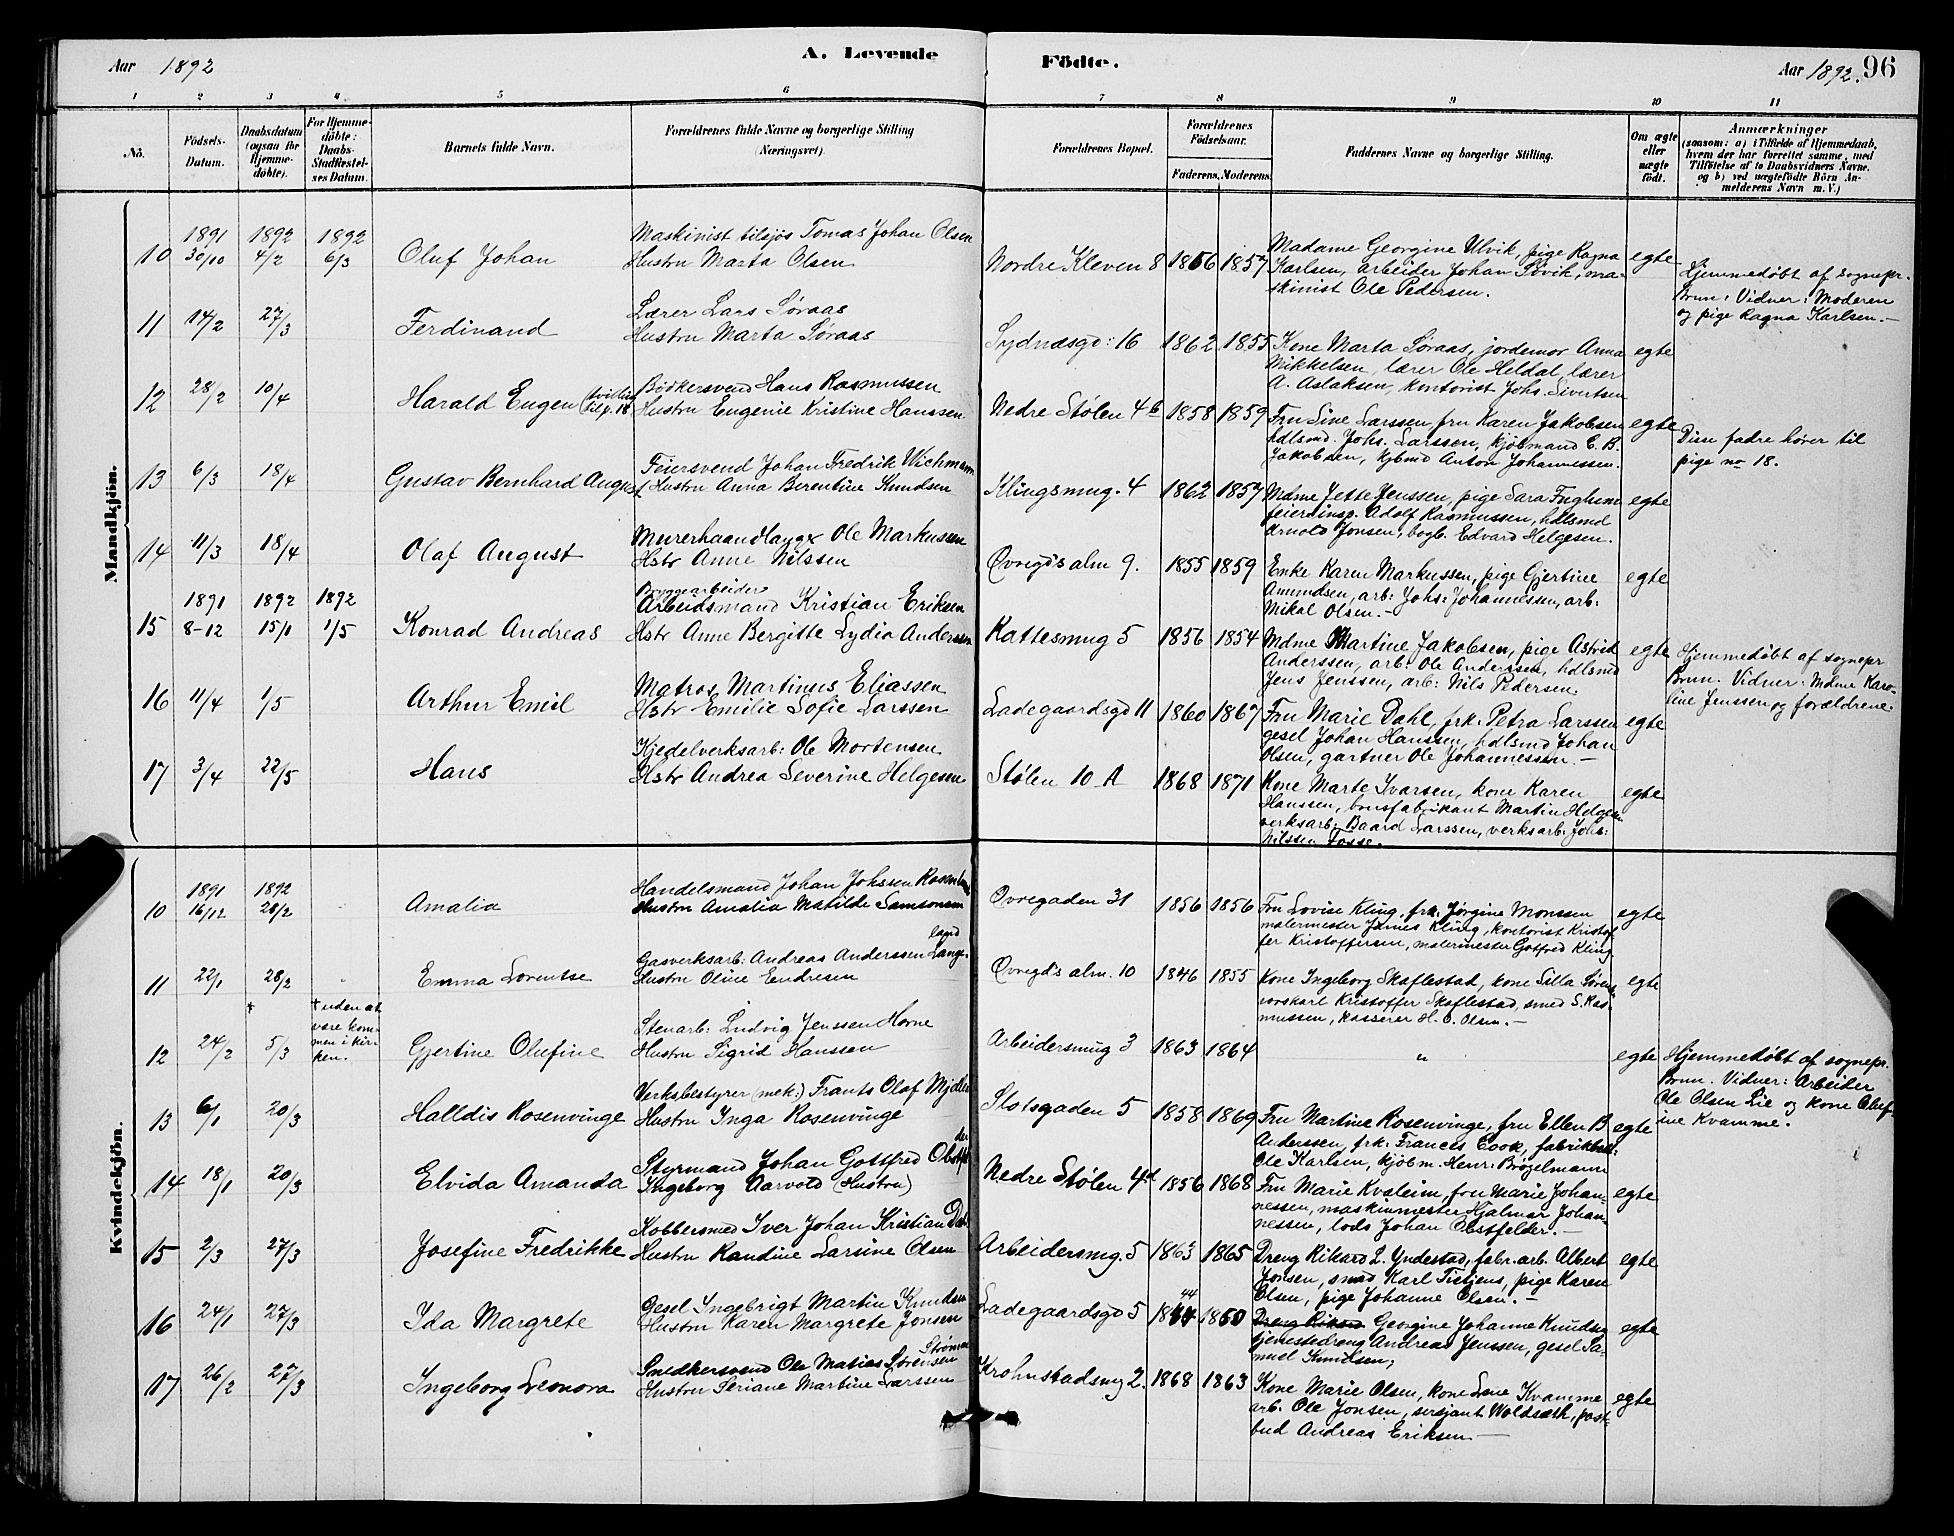 Aar 1892
A. Levende Födte.
Aar 1892. 96
1 2 3 4 5 6 7 8 9 10 11
No.
Födsels-Datum.
Daabsdatum (ogsaa for Hjemme-döbte).
For Hjemme-döbte: Daabs-Stadfæstel-ses Datum.
Barnets fulde Navn.
Forældrenes fulde Navne og borgerlige Stilling (Næringsvei).
Forældrenes Bopæl.
Forældrenes Födselsaar.
Faderens. Moderens.
Faddernes Navne og borgerlige Stilling.
Om ægte eller uægte födt.
Anmærkninger
(saasom: a) i Tilfælde af Hjemmedaab,
hvem der har forrettet samme, med
Tilföielse af to Daabsvidners Navne.
og b) ved uægtefödte Börn An-
melderens Navn m. V.)
Mandkjön.
10 1891 30/10 1892 4/2 1892 6/3 Oluf Johan
Maskinist tilsjøs Tomas Johan Olsen
Hustru Marta Olsen
Nordre Kleven 8 1856 1857
Madame Georgine Ulvik, pige Ragna
Karlsen, arbeider Johan Søvik, ma-
skinist Ole Pedersen.
egte
Hjemmedøbt af sognepr.
Brun: Vidner: Moderen
og pige Ragna Karlsen.—
11 14/2 27/3 Ferdinand
Lærer Lars Søraas
Hustru Marta Søraas
Sydnæsgd: 16 1862 1855
Kone Marta Søraas, jordemor Anna
Mikkelsen, lærer Ole Heldal, lærer
A. Aslaksen, kontorist Johs. Sivertsen
egte
12 28/2 10/4 Harald Eugen (tvilling til p. 18)
Bødkersvend Hans Rasmussen
Hustru Eugenie Kristine Hanssen
Nedre Stølen 4b 1858 1859
Fru Line Larssen fru Karen Jakobsen
hdlsmd. Johs. Larssen, kjøbmand E. B.
Jakobsen, kjbmd Anton Johannessen.
egte
Disse fadre hører til
pige no 18.
13 6/3 18/4 Gustav Bernhard August
Feiersvend Johan Fredrik Wichmann
Hustru Anna Berentine Knudsen
Klingsmug. 4 1862 1857
Mdme Jette Jenssen, pige Sara Fuglum
feierinsp. Adolf Rasmussen, hdlsmd
Arnold Jonsen, bogb. Edvard Helgesen.
egte
14 11/3 18/4 Olaf August
Murerhaandlanger Ole Markussen
Hstr Anne Nilssen
Øvregd's alm 9. 1855 1859
Enke Karen Markussen, pige Gjertine
Amundsen, arb: Johs: Johannessen, arb:
Mikal Olsen.—
egte
15 1891 8-12 1892 15/1 1892 1/5 Konrad Andreas
Bryggearbeider
Arbeidsmand Kristian Eriksen
Hstr Anne Bergitte Lydia Anderssen
Kattesmug 5 1856 1854
Mdme Martine Jakobsen, pige Astrid
Anderssen, arb: Ole Anderssen, hdlsmd
Jens Jenssen, arb: Nils Pedersen
egte
Hjemmedøbt af sognepr
Brun. Vidner: Mdme Karo-
line Jenssen og forældrene.
16 11/4 1/5 Arthur Emil
Matros Martinus Eliassen
Hstr Emilie Sofie Larssen
Ladegaardsgd 11 1860 1867
Fru Marie Dahl, frk: Petra Larssen
gesel Johan Hanssen, hdlsmd Johan
Olsen, gartner Ole Johannessen.—
egte
17 3/4 22/5 Hans
Kjedelverksarb: Ole Mortensen
Hstr Andrea Severine Helgesen
Stølen 10 A 1868 1871
Kone Marte Ivarsen, kone Karen
Hanssen, brusfabrikant Martin Helgesen
verksarb: Baard Larssen, verksarb: Johs:
Nilssen Fosse.
egte
Kvindekjön.
10 1891 16/12 1892 28/2 Amalia
Handelsmand Johan Johssen
Hustru Amalia Matilde Samsonsen
Øvregaden 31 1856 1856
Fru Lovise Kling, frk: Jørgine Monssen
malermester James Kling, kontorist Kristof
fer Kristoffersen, malermester Gotfred Kling.
egte
11 22/1 28/2 Emma Lorentse
land
Gasverksarb: Andreas Anderssen Lange-
Hustru Oline Endresen
Øvregd's alm. 10 1846 1855
Kone Ingeborg Skaflestad, kone Silla Sørens
vorskarl Kristoffer Skaflestad, smed S. Ras-
mussen, kasserer H. C. Olsen.—
egte
12 24/2 † 5/3
† uden at
være kom-
men i kir-
ken.
Gjertine Olufine
Stenarb: Ludvig Jenssen Horne
Hustru Sigrid Hanssen
Arbeidersmug 3 1863 1864
"
egte
Hjemmedøbt af sognepr.
Brun. Vidner: Arbeider
Ole Olsen Lie og kone Oluf-
ine Kvamme.
13 6/1 20/3 Halldis Rosenvinge
Verksbestyrer (mek:) Frants Olaf
Hustru Inga Rosenvinge
Slotsgaden 5 1858 1869
Fru Martine Rosenvinge, fru Ellen B
Anderssen, frk: Frances Cook, fabrikbest:
Ole Karlsen, kjøbm. Henr: Brøgelmann
egte
14 18/1 20/3 Elvida Amanda
der
Styrmand Johan Gottfred Obstfel
Ingeborg Aarvold (Hustru)
Nedre Stølen 4d 1856 1868
Fru Marie Kvaleim, fru Marie Johan-
nessen, maskinmester Hjalmar Johan-
nessen, lods Johan Obstfelder.—
egte
15 2/3 27/3 Josefine Fredrikke
Kobbersmed Iver Johan Kristian
Hustru Randine Larsine Olsen
Arbeidersmg. 5 1863 1865
Dreng Rikard L. Yndestad, fabr. arb. Albert
Jonsen, smed Karl Tietjens, pige Karen
Olsen, pige Johanne Olsen.—
egte
16 24/1 27/3 Ida Margrete
Gesel Ingebrigt Martin Knudsen
Hustru Karen Margrete Jonsen
Ladegaardsgd 5 44 1844 1850
Dreng Rikard Georgine Johanne Knudsen
tjenestedreng Andreas Jenssen, gesel Sa-
muel Knudsen,
egte
17 26/2 27/3 Ingeborg Leonora
Strømme
Snedkersvend Ole Matias Sørensen
Hustru Seriane Martine Larssen
Krohnstadsveg 2. 1868 1863
Kone Marie Olsen, kone Lene Kvamme
arb. Ole Jonsen, sersjant Woldsæth, post-
bud Andreas Eriksen—
egte